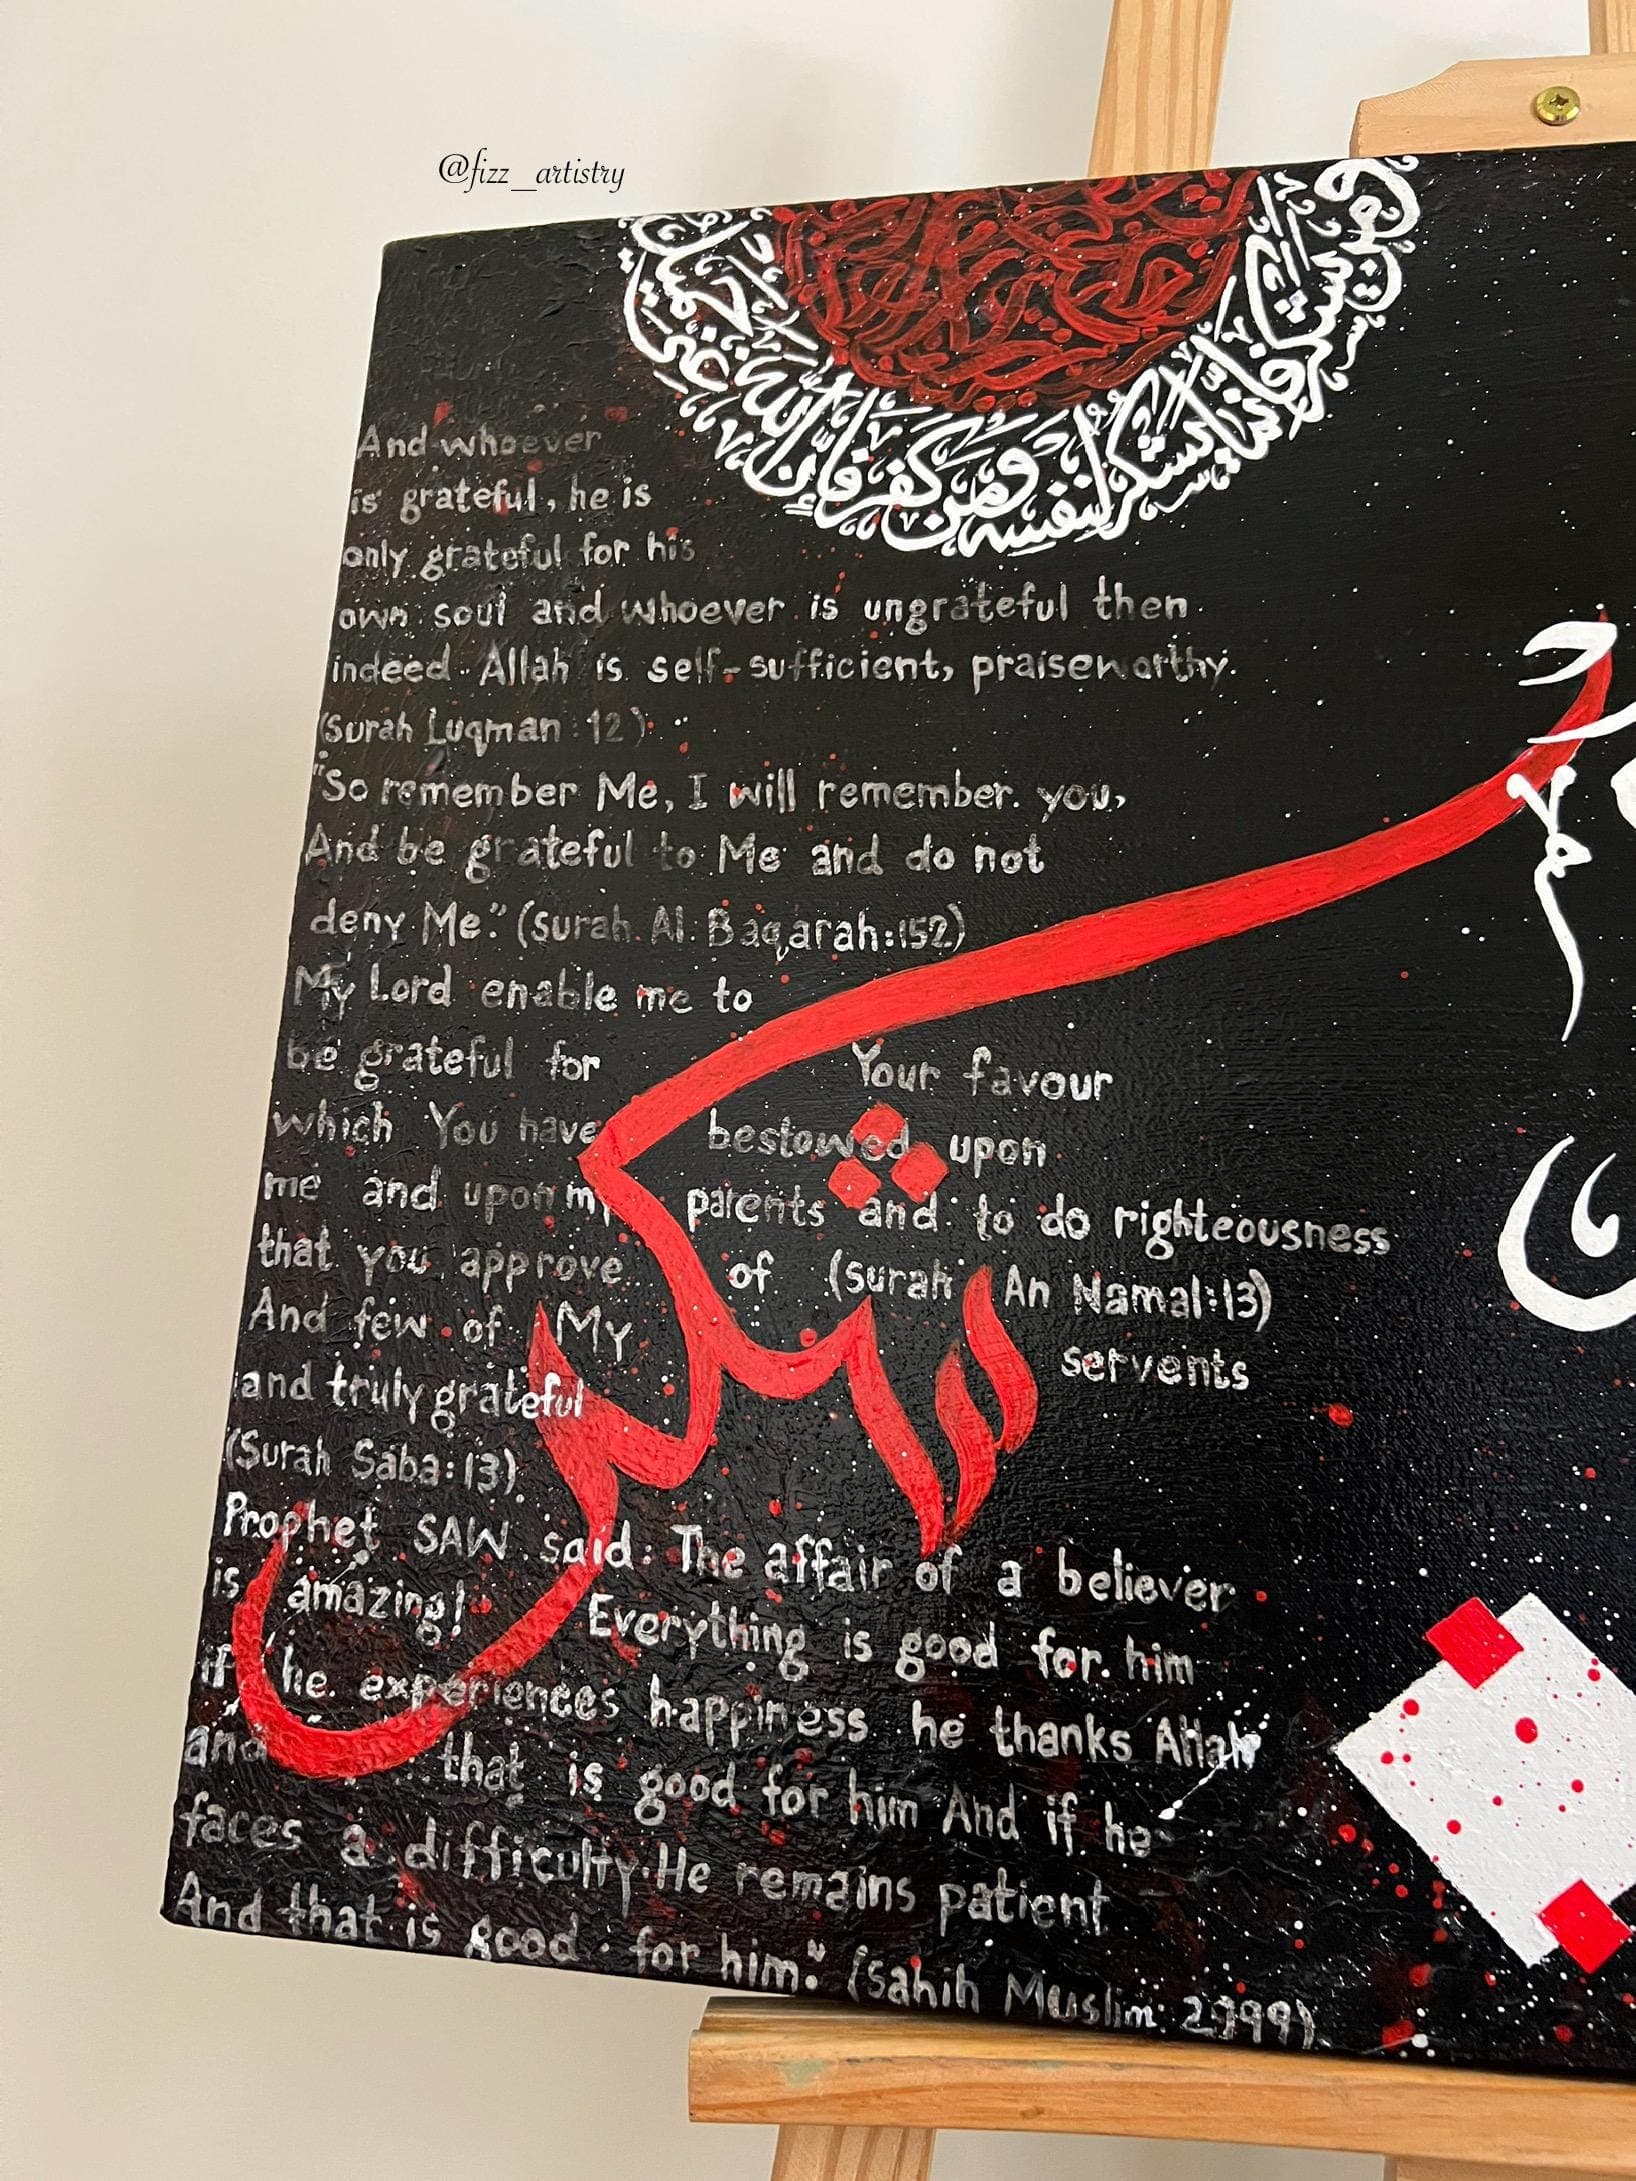 @fizz_artistry
ومن يشكر فإنما يشكر لنفسه ومن كفر فإن الله غني حميد
And whoever
is grateful, he is
only grateful for his
own soul and whoever is ungrateful then
indeed Allah is self-sufficient, praiseworthy.
(Surah Luqman: 12)
"So remember Me, I will remember you,
And be grateful to Me and do not
deny Me." (Surah Al. Baqarah:152)
My Lord enable me to
be grateful for Your favour
which You have bestowed upon
me and upon my parents and to do righteousness
that you approve of (surah An Namal:13)
And few of My servents
and truly grateful
(Surah Saba:13)
شكر
Prophet SAW said: The affair of a believer
is amazing! Everything is good for him
if he experiences happiness he thanks Allah
and that is good for him And if he
faces a difficulty. He remains patient
And that is good for him." (Sahih Muslim: 2999)